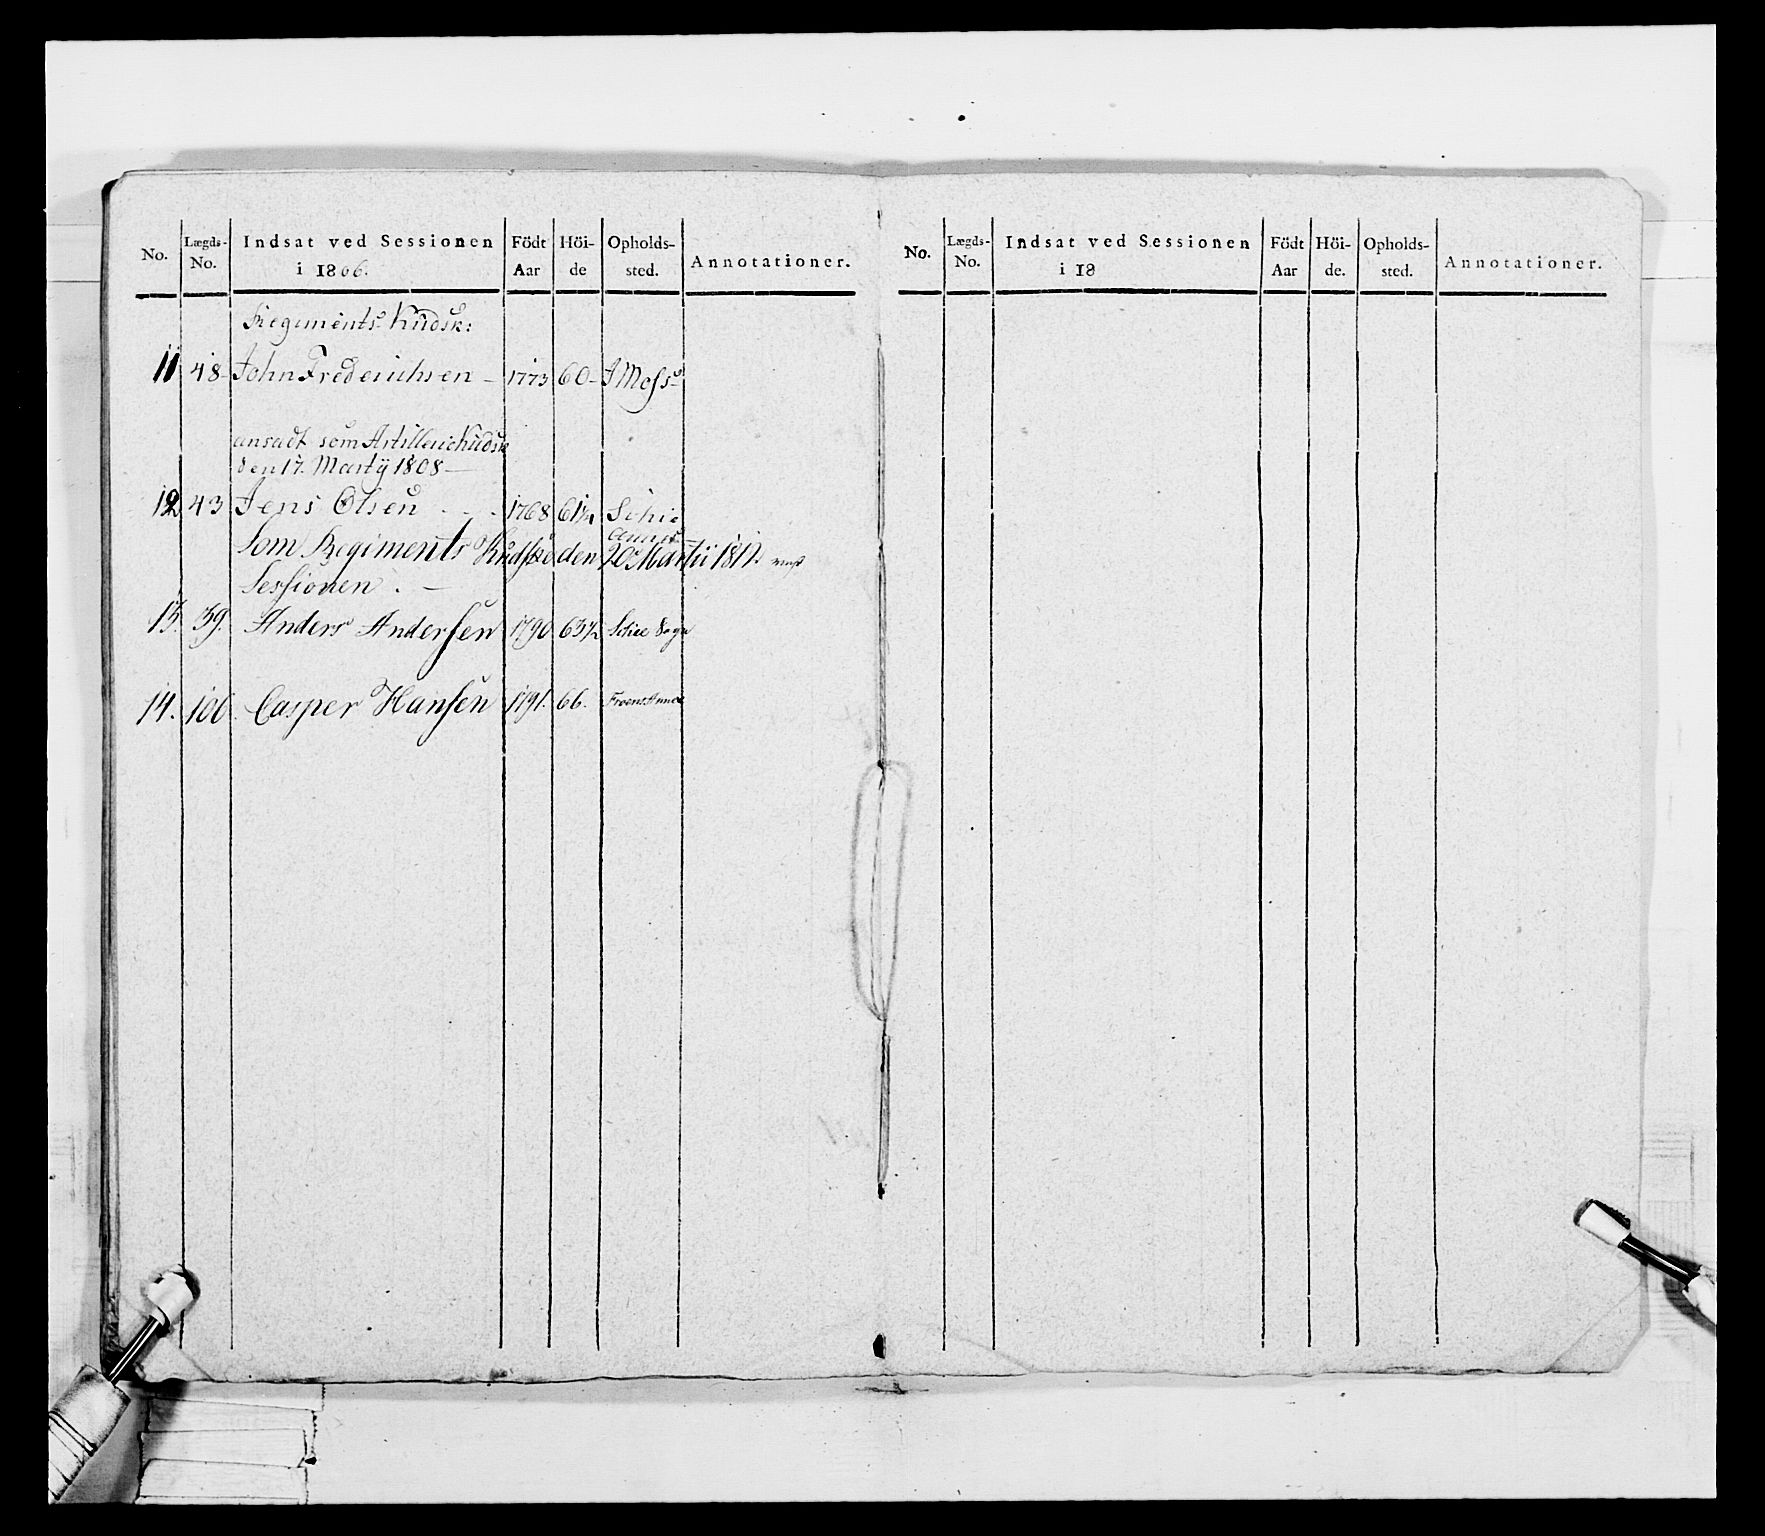 No. Lægds-No. Indsat ved Sessionen i 1806. Födt Aar Höi-de Opholds-sted. Annotationer.
Regiments Kudsk:
11 48- John Frederichsen - 1773 60- I Moss
ansadt som Artillerie Kudsk
den 17. Martÿ 1808 -
12 43 Jens Olsen . . . 1768 61½ Schie
Annex
Som Regiments Kudske den 20 Martii 1812.
Sessionen . -
13. 39. Anders Andersen 1790 63½ Schiee Sogn
14. 106. Casper Hansen 1791. 66. Froens Annex
No. Lægds-No. Indsat ved Sessionen i 18 Födt Aar Höi-de. Opholds-sted. Annotationer.